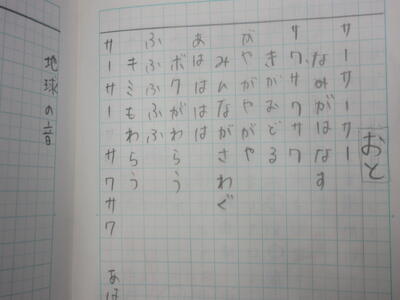 おと
サーサーサー
なみがはなす
サワサワサワ
きがおどる
みんながさわぐ
あはははは
ボクがわらう
ふふふふふ
キミもわらう
サーサー サワサワ
あは
地球の音